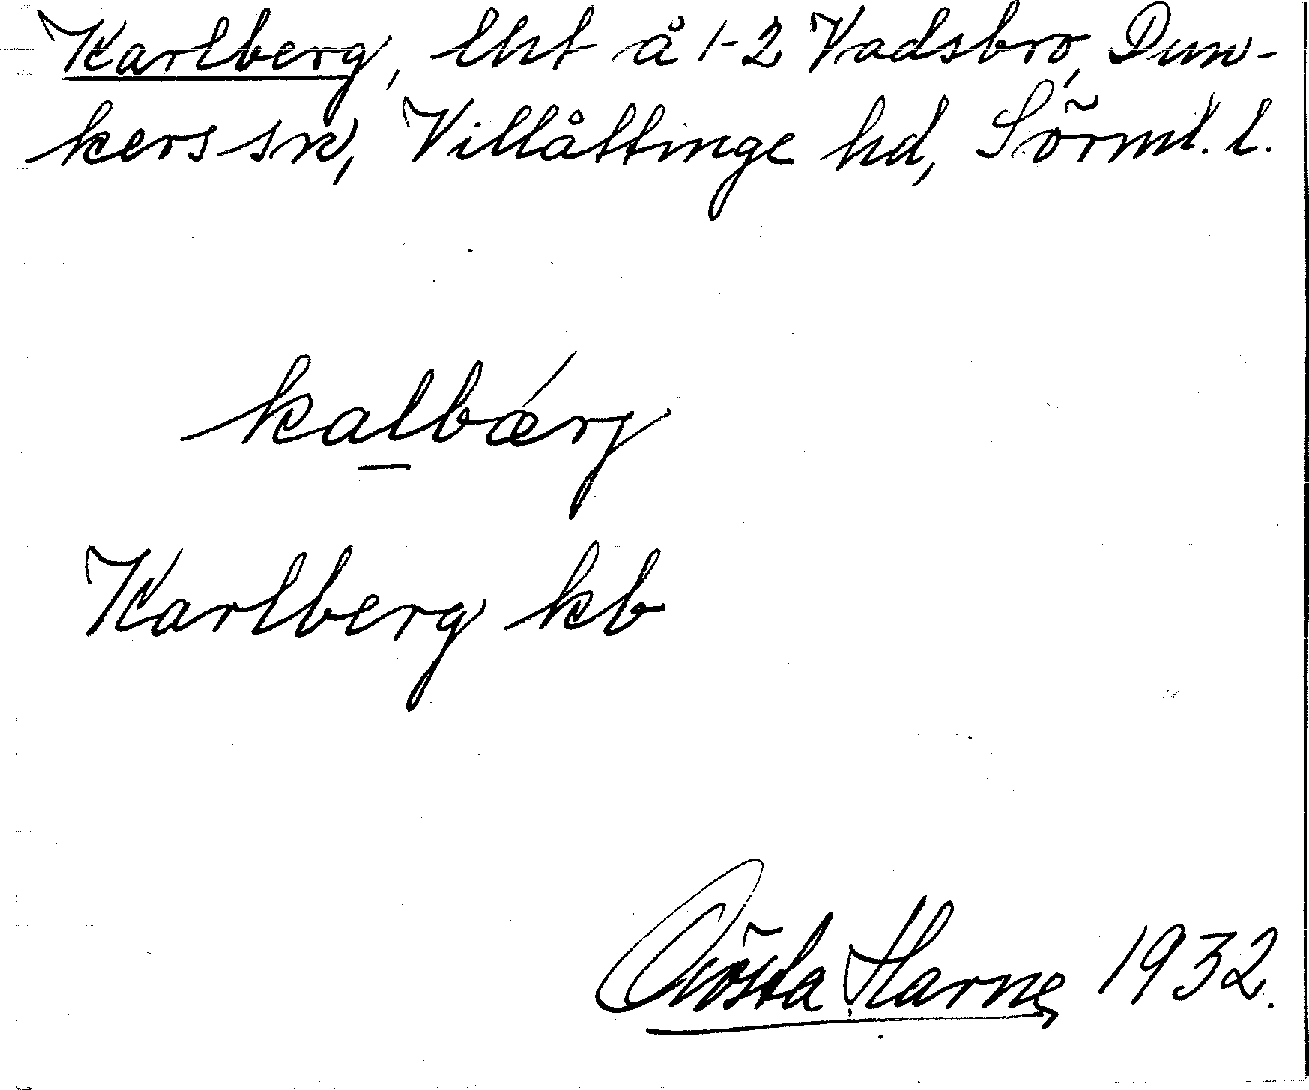 Karlberg, lht å 1-2 Vadsbro, Dun-
kers sn, Villåttinge hd, Sörml. l.
kalbǽrj
Karlberg kb
Gösta Harne 1932.